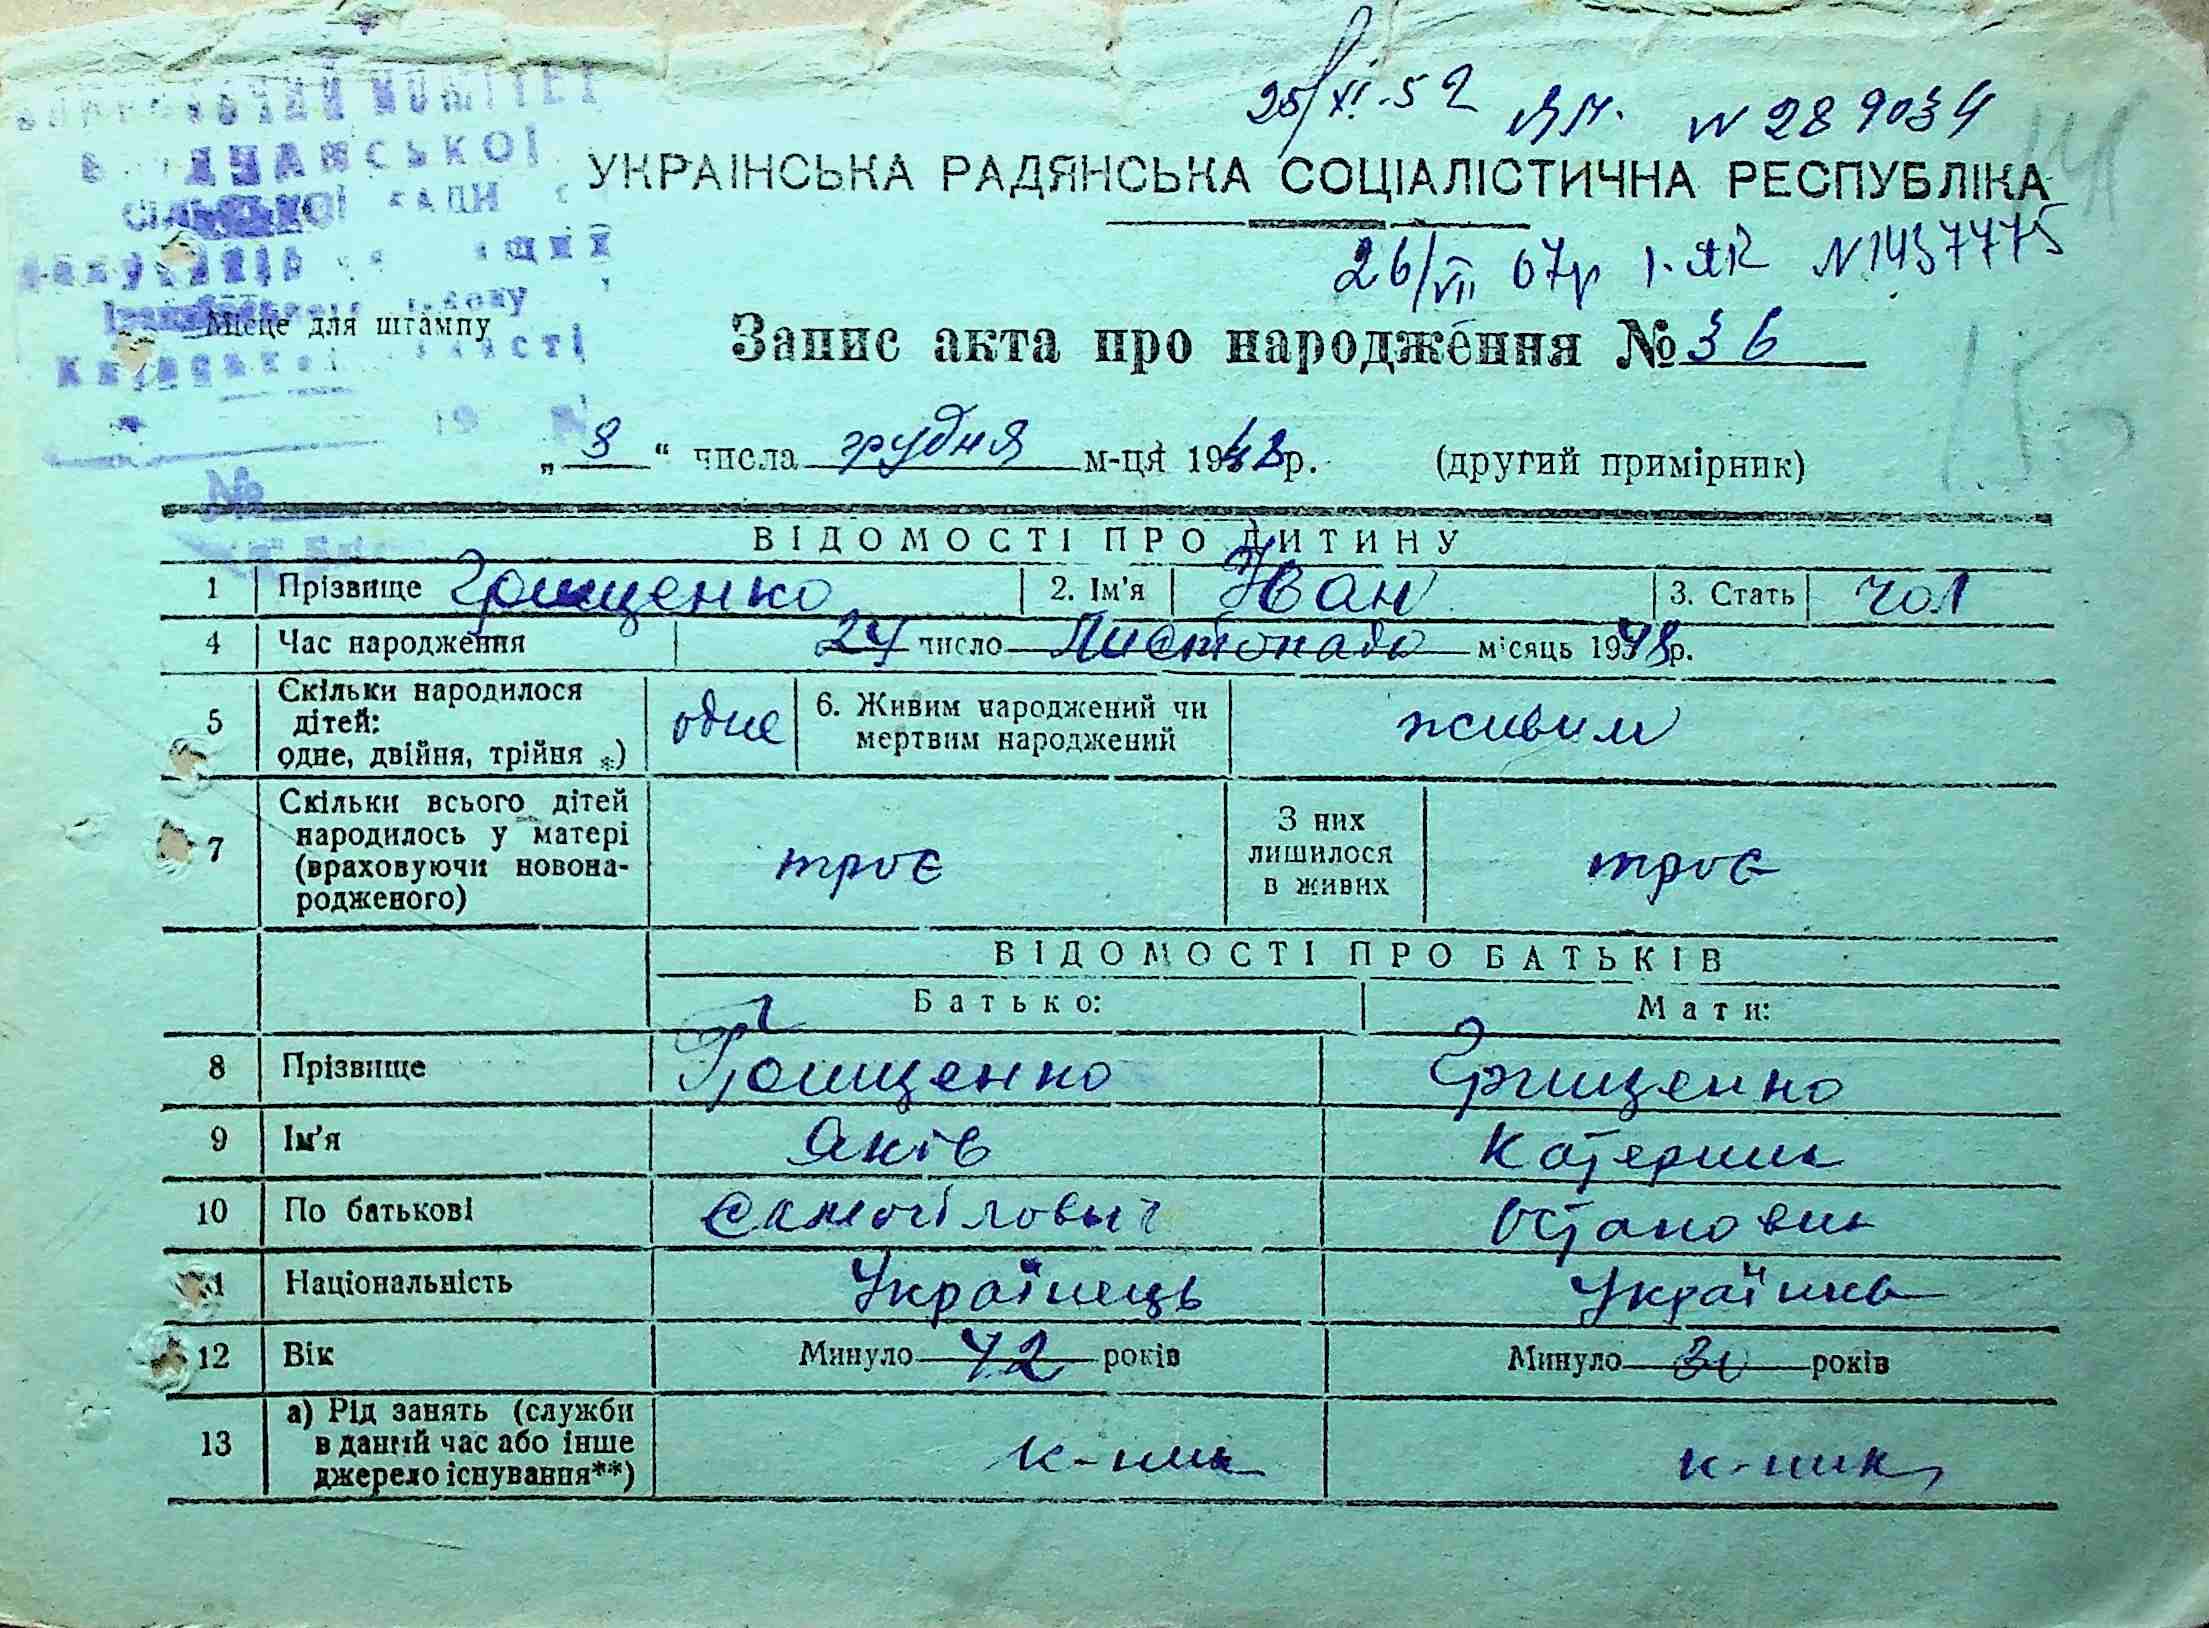 25/XI.52 ЯМ. N 289034
УКРАІНСЬКА РАДЯНСЬКА СОЦІАЛІСТИЧНА РЕСПУБЛІКА
26/VII 67р І-ЯК N 1437775
КОМІТЕТ
СІЛЬСЬКОЇ РАДИ
Місце для штампу
Запис акта про народження № 36
„8“ числа грудня м-ця 1948р. (другий примірник)
№
ВІДОМОСТІ ПРО ДИТИНУ
1 Прізвище Грищенко 2. Ім'я Іван 3. Стать чол
4 Час народження 24 число Листопада місяць 1948р.
5 Скільки народилося дітей: одне, двійня, трійня *) одне 6. Живим народжений чи мертвим народжений живим
7 Скільки всього дітей народилось у матері (враховуючи новонародженого) троє З них лишилося в живих троє
ВІДОМОСТІ ПРО БАТЬКІВ
Батько: Мати:
8 Прізвище Грищенко Грищенко
9 Ім'я Яків Катерина
10 По батькові Самойлович Остаповна
11 Національність Українець Українка
12 Вік Минуло 42 років Минуло років
13 а) Рід занять (служби в даний час або інше джерело існування**) к-ник к-ник